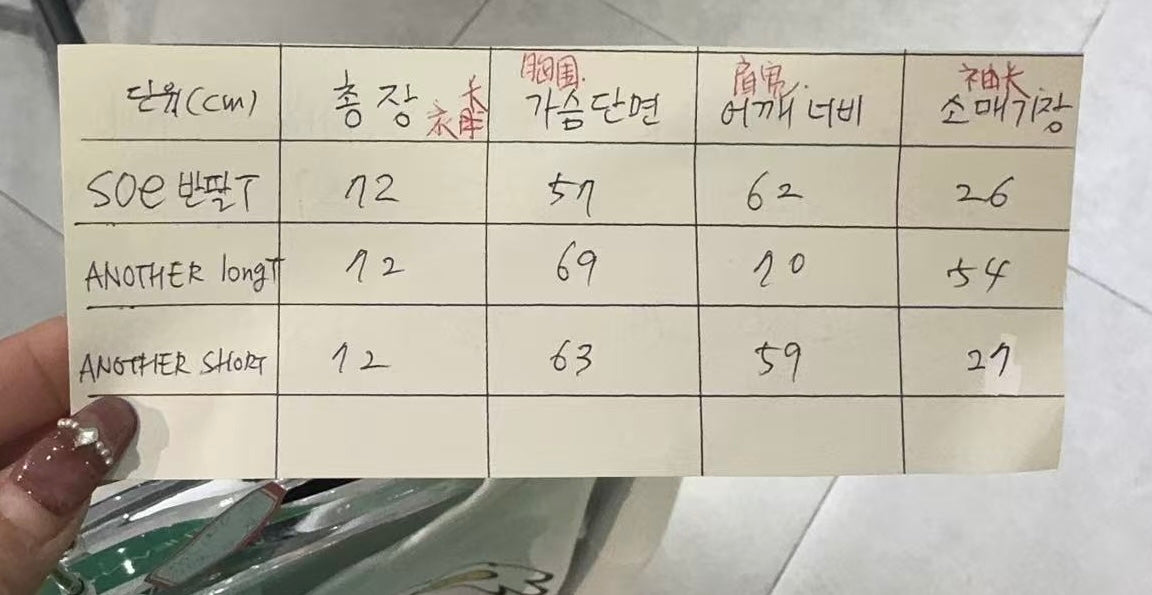 단위(cm) 총장 衣长 胸围. 가슴단면 肩宽. 어깨너비 袖长. 소매기장
SOE 반팔T 72 57 62 26
ANOTHER longT 72 69 70 54
ANOTHER SHORT 72 63 59 27